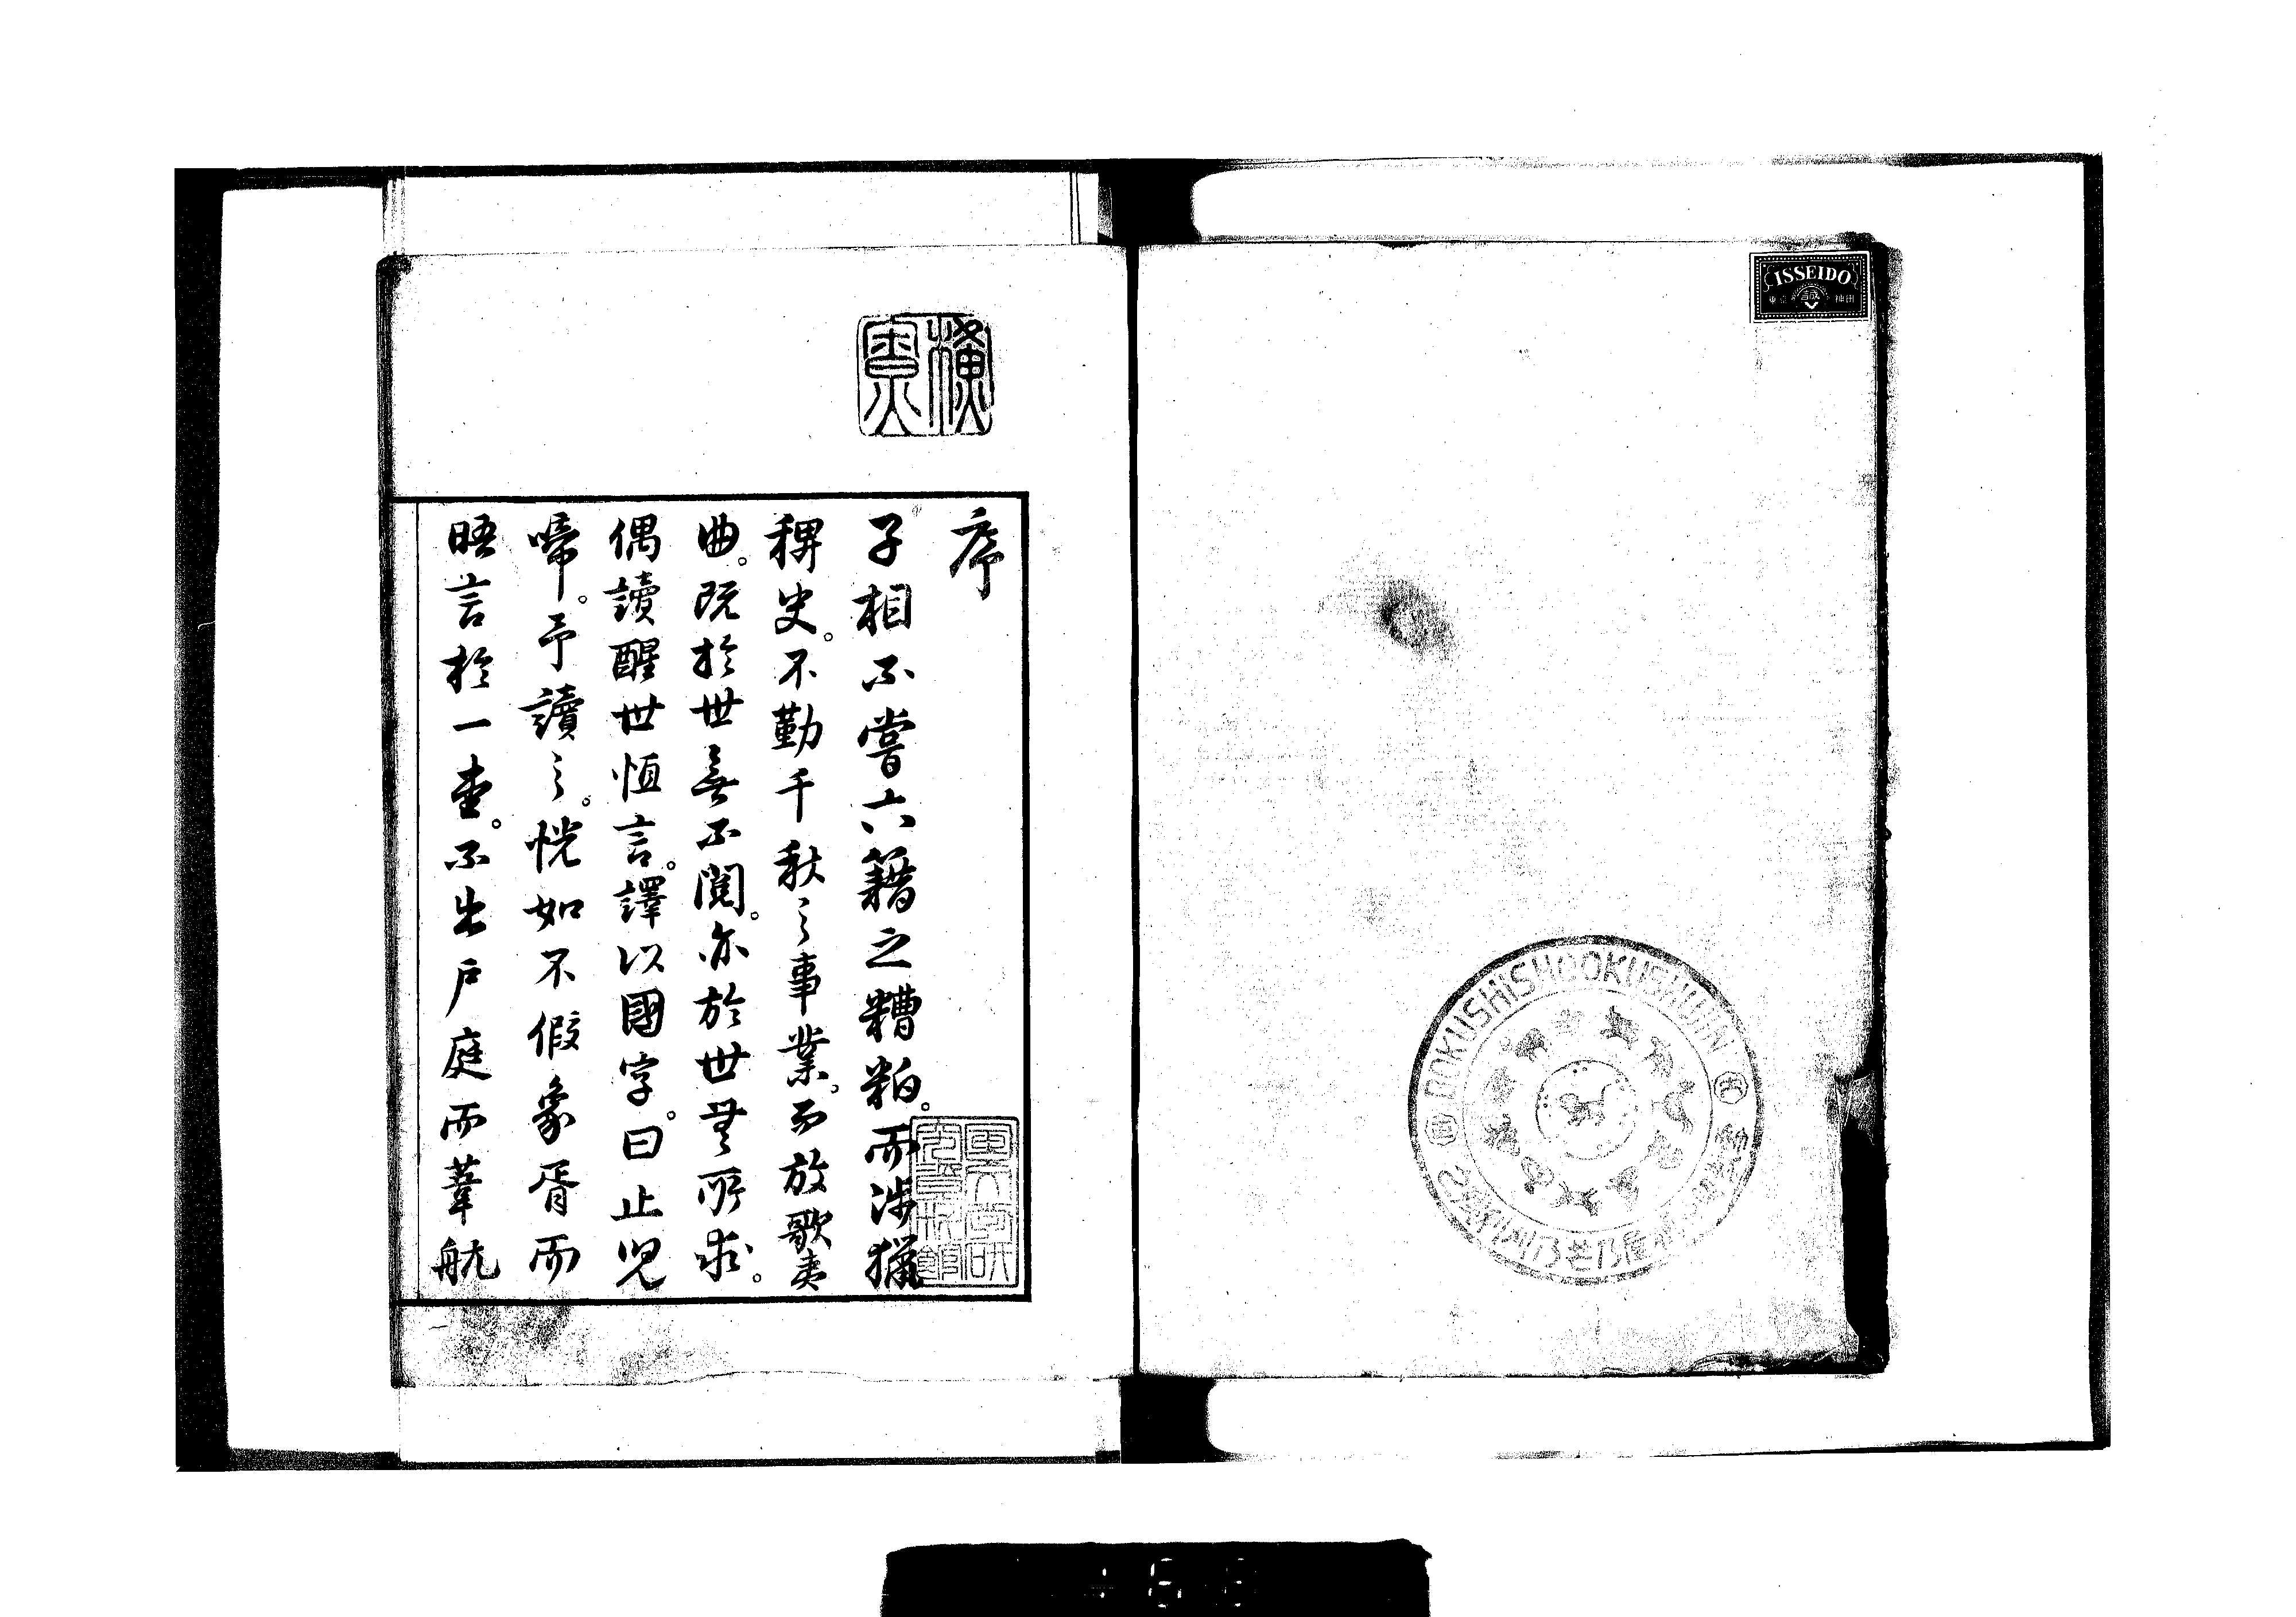 ISSEIDO
東京 誠 神田
DOKUSHISHOOKUSHUJIN
序
子相不嘗六籍之糟粕。而涉獵
稗史。不勤千秋之事業。而放歌夷
曲。既於世無不閲。亦於世無所求。
偶讀醒世恒言。譯以國字。曰止児
啼。予讀之。恍如不假象胥而
晤言於一堂。不出戶庭而葦航